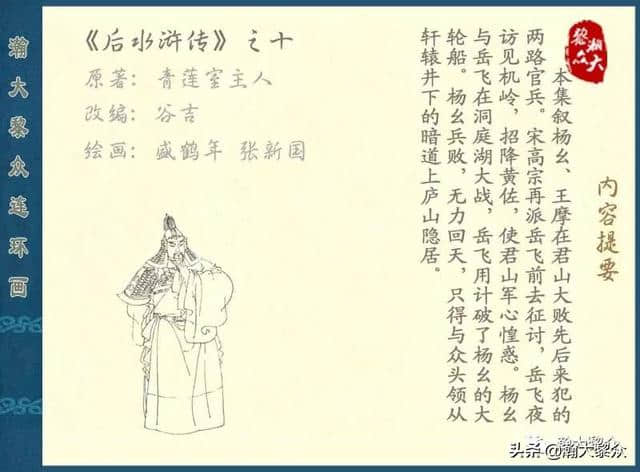 瀚大黎众连环画
《后水浒传》之十
原著：青莲室主人
改编：谷吉
绘画：盛鹤年 张新国
黎众
瀚大
内容提要
本集叙杨幺、王摩在君山大败先后来犯的
两路官兵。宋高宗再派岳飞前去征讨，岳飞夜
访见机岭，招降黄佐，使君山军心惶惑。杨幺
与岳飞在洞庭湖大战，岳飞用计破了杨幺的大
轮船。杨幺兵败，无力回天，只得与众头领从
轩辕井下的暗道上庐山隐居。
瀚大黎众
头条 @瀚大黎众